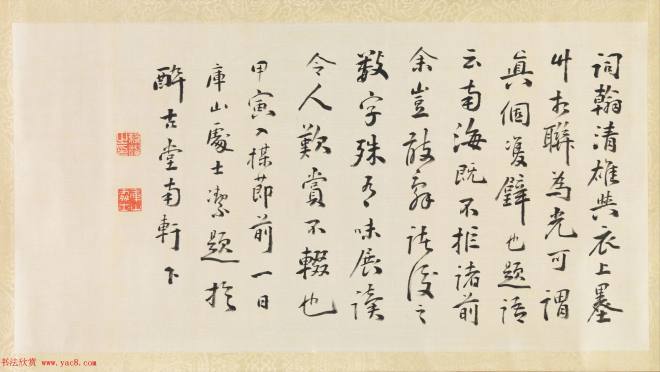 詞翰清雄與衣上墨
竹相聯為光可謂
真個雙璧也題語
云南海既不拒諸前
余豈敢辭諸後之
數字殊有味展讀
令人歎賞不輟也
甲寅入楳節前一日
庫山處士潔題於
醉古堂南軒下
书法欣赏 www.yac8.com